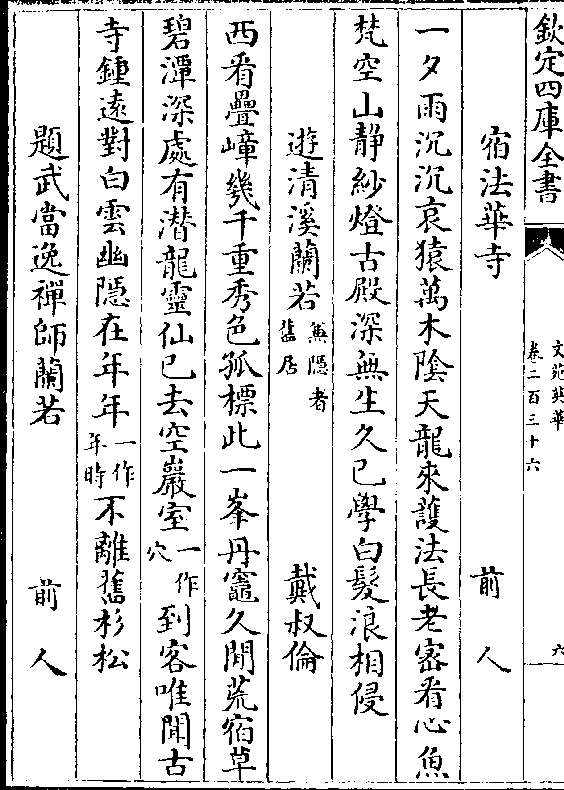 欽定四庫全書
文苑英華
卷二百三十六
六
宿法華寺 前人
一夕雨沉沉哀猿萬木隂天龍來護法長老宻看心魚
梵空山静紗燈古殿深無生久已學白髮浪相侵
遊清溪蘭若兼隠者舊居 戴叔倫
西看疊嶂幾千重秀色孤標此一峯丹竈久閒荒宿草
碧潭深處有潜龍靈仙已去空巖室一作穴到客唯聞古
寺鍾逺對白雲幽隠在年年一作年時不離舊杉松
題武當逸禪師蘭若 前人